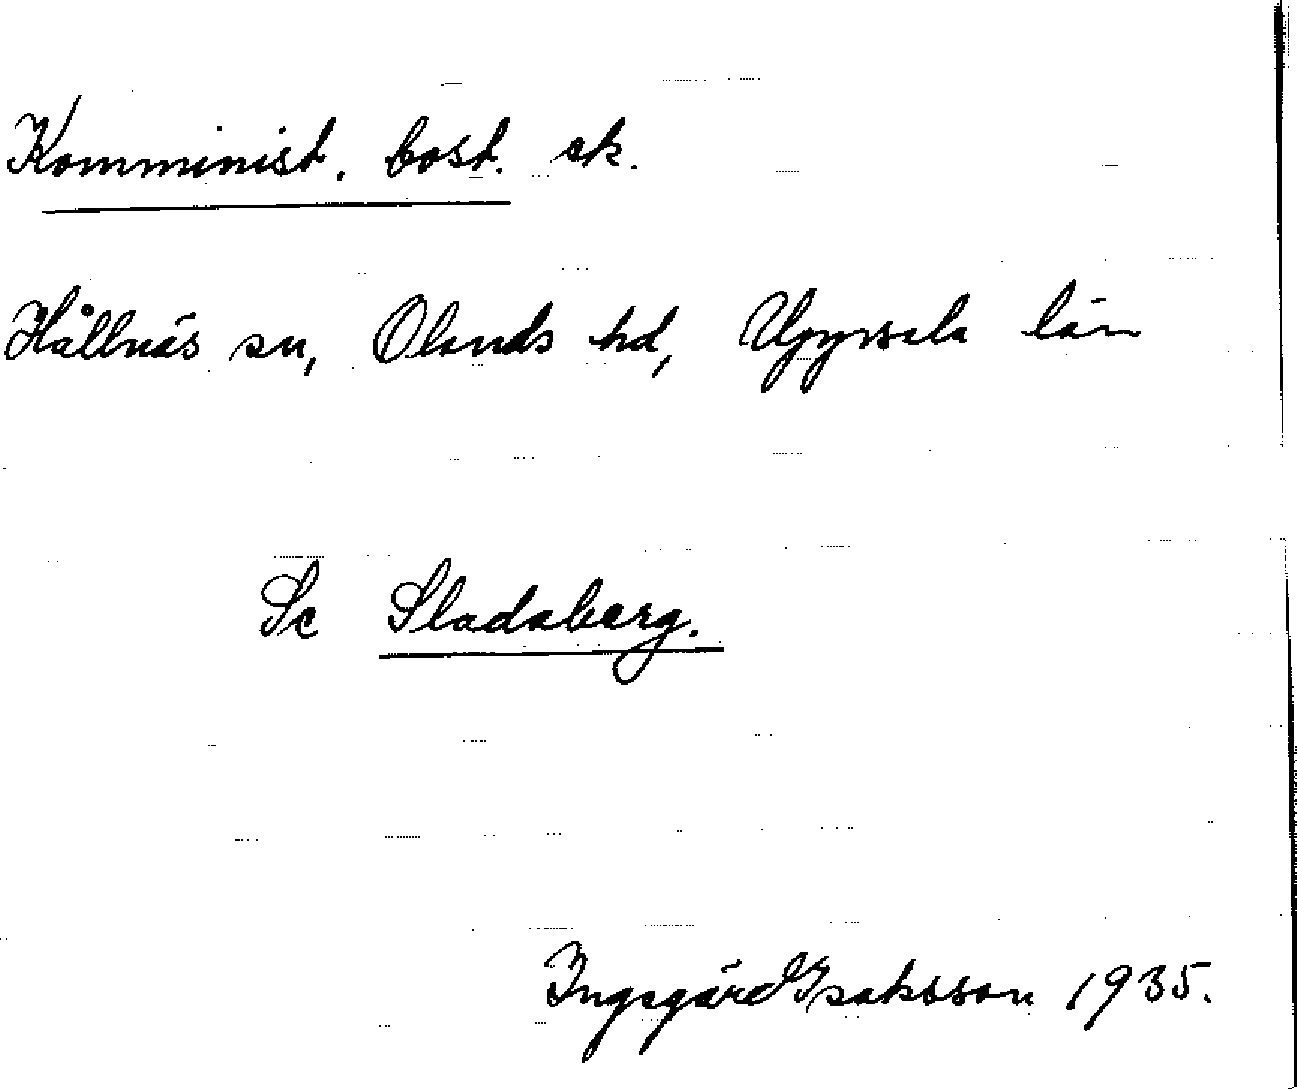 Komminist. bost. ak.
Hållnäs sn, Olands hd, Uppsala län
Se Sladaberg.
Ingegärd Isaksson 1935.